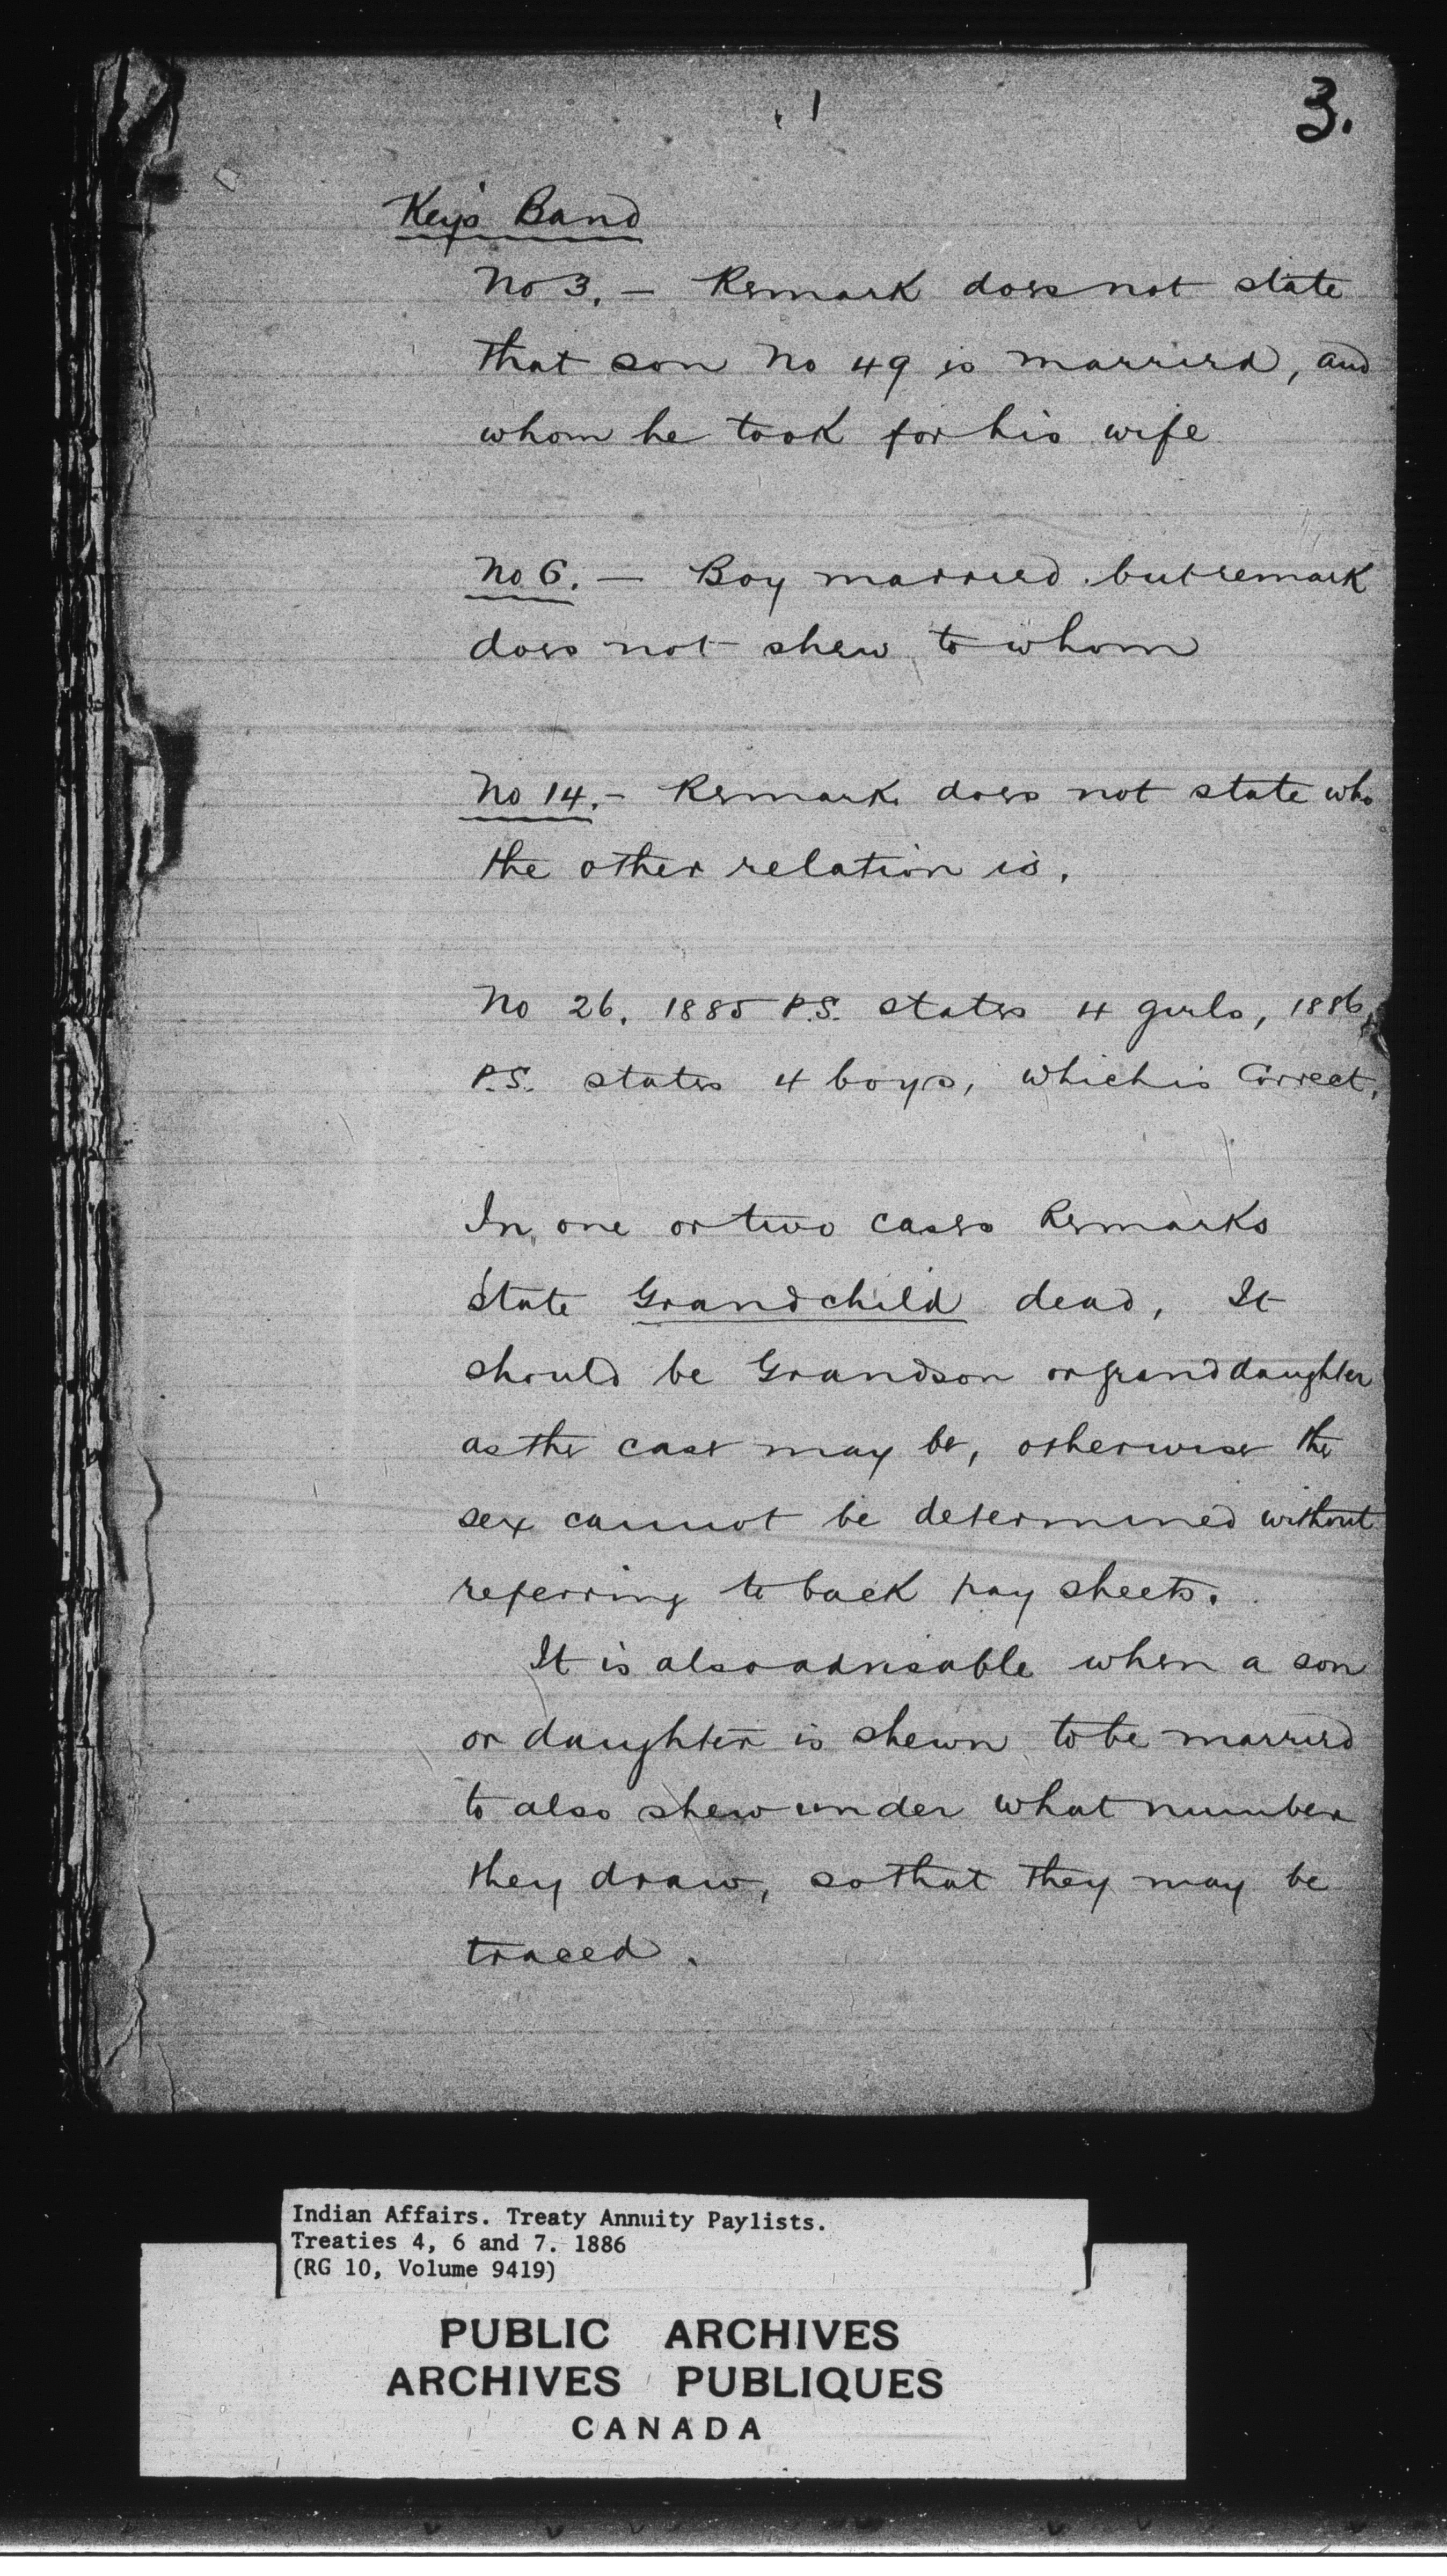 3.
Key's Band
No 3. — Remark does not state
that son No 49 is married, and
whom he took for his wife
No 6. — Boy married but remark
does not shew to whom
No 14. — Remark does not state who
the other relation is.
No 26. 1885 P.S. states 4 girls, 1886
P.S. states 4 boys, which is Correct.
In one or two cases Remarks
State Grandchild dead, It
should be Grandson or granddaughter
as the case may be, otherwise the
sex cannot be determined without
referring to back pay sheets.
It is also advisable when a son
or daughter is shewn to be married
to also shew under what number
they draw, so that they may be
traced.
Indian Affairs. Treaty Annuity Paylists.
Treaties 4, 6 and 7. 1886
(RG 10, Volume 9419)
PUBLIC ARCHIVES
ARCHIVES PUBLIQUES
CANADA